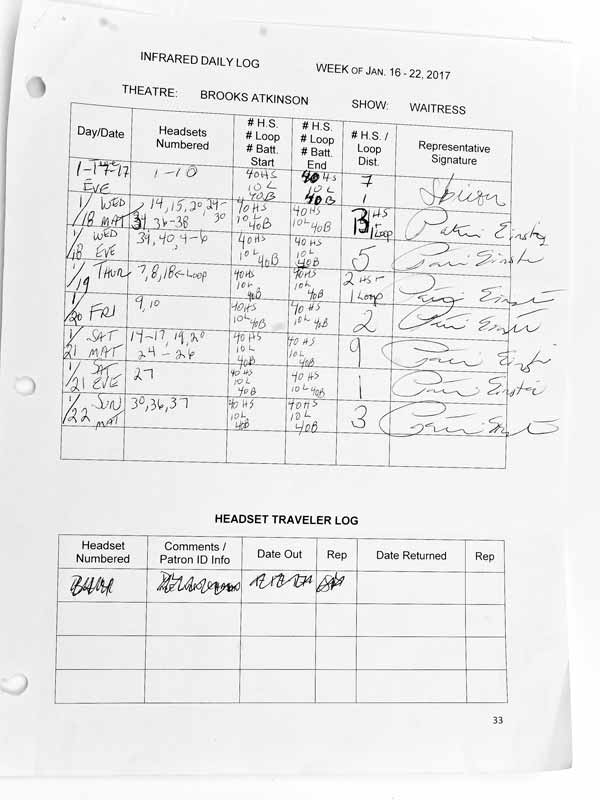 INFRARED DAILY LOG WEEK OF JAN. 16 - 22, 2017
THEATRE: BROOKS ATKINSON SHOW: WAITRESS
Day/Date Headsets Numbered # H.S. # Loop # Batt. Start # H.S. # Loop # Batt. End # H.S. / Loop Dist. Representative Signature
1-17-17 EVE 1-10 40HS 10L 40B 40HS 10L 40B 7 1
1/18 WED MAT 14, 15, 20, 24-30 34, 36-38 40HS 10L 40B 40HS 10L 40B HS 1 Loop Patrii Einstein
1/18 WED EVE 39, 40, 4-6 40HS 10L 40B 40HS 10L 40B 5 Einstein
1/19 THUR 7, 8, 18 ← Loop 40HS 10L 40B 40HS 10L 40B 2 HS 1 Loop Einstein
1/20 FRI 9, 10 40HS 10L 40B 40HS 10L 40B 2 Einstein
1/21 SAT MAT 14-17, 19, 20 24-26 40HS 10L 40B 40HS 10L 40B 9 Einstein
1/21 SAT EVE 27 40HS 10L 40B 40HS 10L 40B 1 Einstein
1/22 SUN MAT 30, 36, 37 40HS 10L 40B 40HS 10L 40B 3
HEADSET TRAVELER LOG
Headset Numbered Comments / Patron ID Info Date Out Rep Date Returned Rep
33